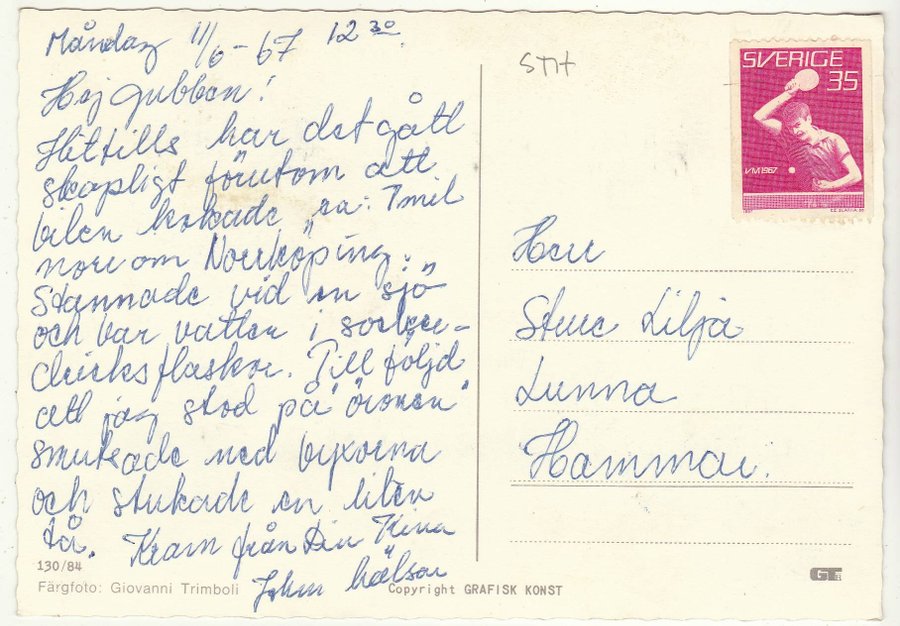 Måndag 11/6-67 12 30
Hej gubben!
Hittills har det gått
skapligt förutom att
bilen kokade, ca: 7 mil
norr om Norrköping.
Stannade vid en sjö
och bar vatten i socker-
dricksflaskor. Till följd
att jag stod på "öronen"
smutsade ned byxorna
och stukade en liten
tå. Kram från Din Nina
John hälsar
130/84
Färgfoto: Giovanni Trimboli
Copyright GRAFISK KONST
SVERIGE
35
VM 1967
Herr
Sture Lilja
Lunna
Hammar.
GT